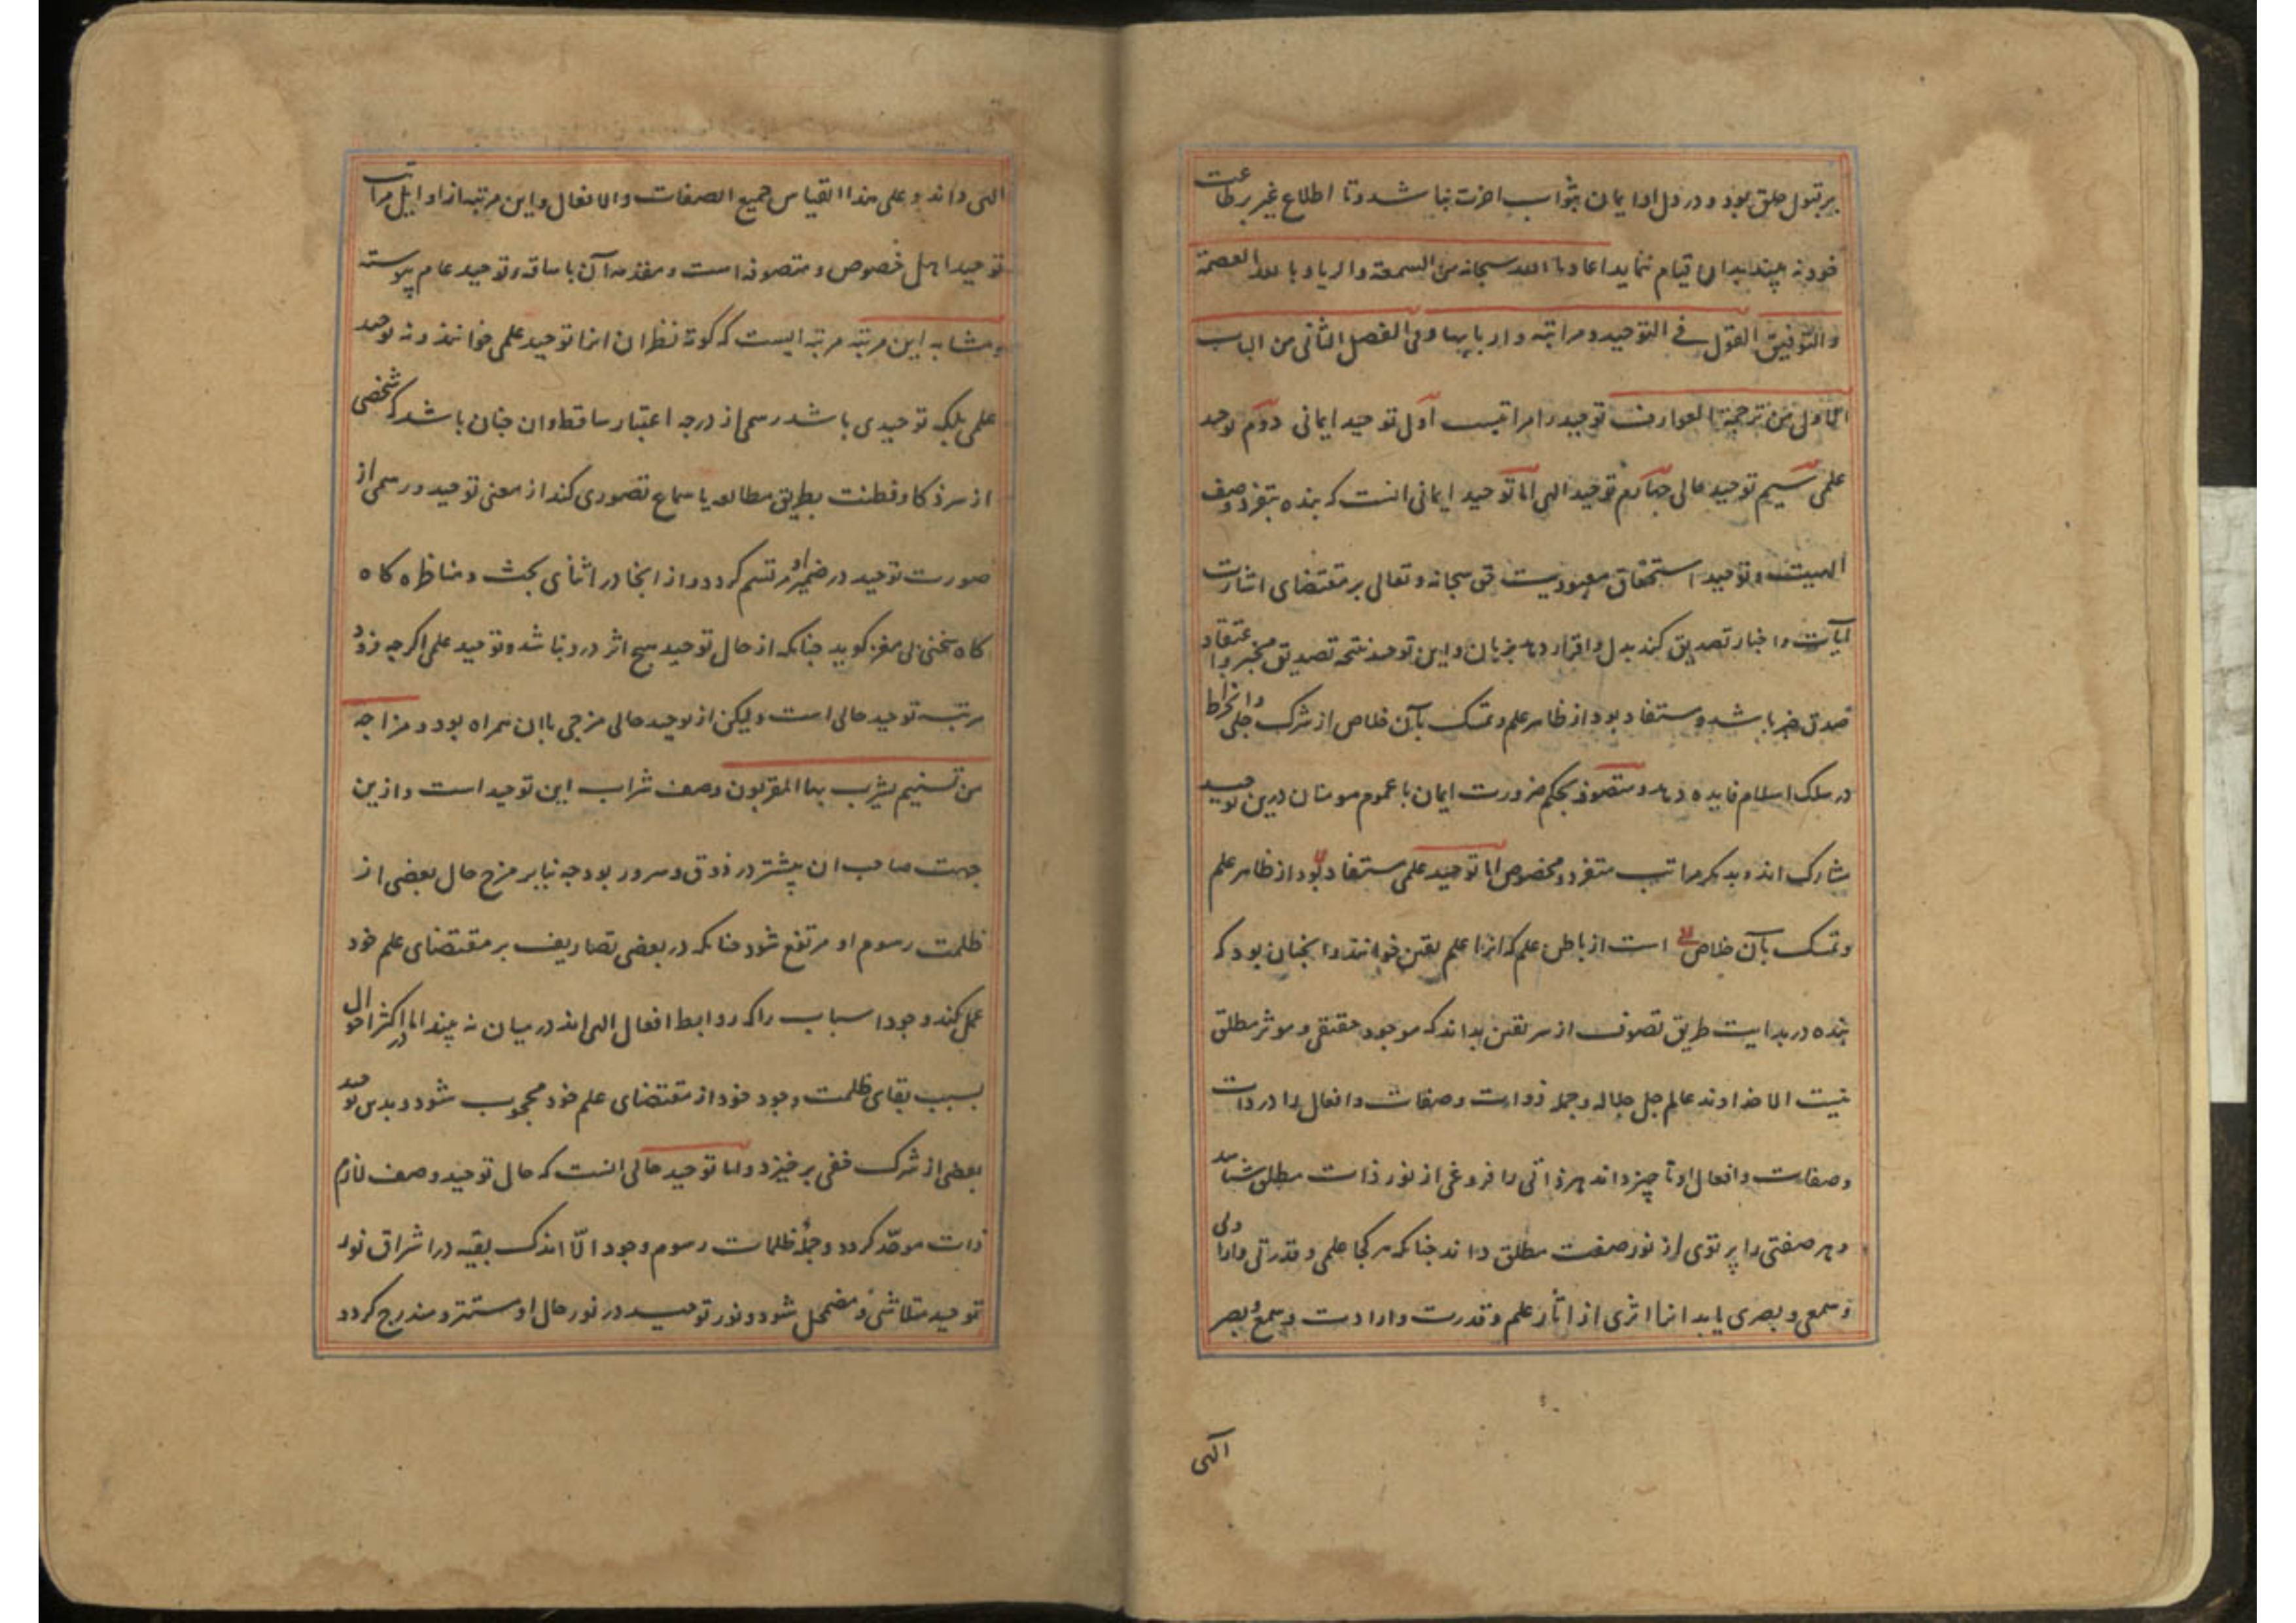 بر قبول خلق بود و در دل او ایمان بثواب اخرت نباشد و تا اطلاع غیر بر طاعت
خود نه بیند بدان قیام ننماید اعاذنا الله سبحانه من السمعة والریا و بالله العصمة
والتوفیق القول فی التوحید و مراتبه و اربابها و فی الفصل الثانی من الباب
الاول من ترجمة العوارف توحید را مراتبست اول توحید ایمانی دوم توحید
علمی سیم توحید حالی چهارم توحید الهی اما توحید ایمانی انست که بنده بتفرد وصف
الهیت و توحید استحقاق معبودیت حق سبحانه و تعالی بر مقتضای اشارت
آیات و اخبار تصدیق کند بدل و اقرار دهد بزبان و این توحید نتیجه تصدیق مخبر و اعتقاد
صدق خبر باشد و مستفاد بود از ظاهر علم و تمسک بآن خلاص از شرک جلی و انخراط
در سلک اسلام فایده دهد و متصوفه بحکم ضرورت ایمان با عموم مومنان درین توحید
مشارک اند و بدیکر مراتب متفرد و مخصوص اما توحید علمی مستفاد بود از ظاهر علم
و تمسک بآن خلاص است از باطن علم که انرا علم یقین خوانند و انچنان بود که
بنده در بدایت طریق تصوف از سر یقین بداند که موجود حقیقی و موثر مطلق
نیست الا خداوند عالم جل جلاله و جمله ذوات و صفات و افعال را در ذات
و صفات و افعال او ناچیز داند هر ذاتی را فروغی از نور ذات مطلق شناسد
و هر صفتی را پرتوی از نور صفت مطلق داند چنانکه هر کجا علمی و قدرتی و ارادتی
و سمعی و بصری یابد انرا اثری از آثار علم و قدرت و ارادت و سمع و بصر
آلهی
الهی داند و علی هذا القیاس جمیع الصفات والافعال و این مرتبه از اوایل مراتب
توحید اهل خصوص و متصوفه است و مقدمه آن با ساقه توحید عام پیوسته
و مشابه این مرتبه مرتبه ایست که کوته نظران انرا توحید علمی خوانند و نه توحید
علمی بلکه توحیدی باشد رسمی از درجه اعتبار ساقط و ان چنان باشد که شخصی
از سر ذکا و فطنت بطریق مطالعه یا سماع تصوری کند از معنی توحید و رسمی از
صورت توحید در ضمیر او مرتسم کردد و از انجا در اثنای بحث و مناظره کاه
کاه سخنی بی مغز کوید چنانکه از حال توحید هیچ اثر درو نباشد و توحید علمی اکرچه فرود
مرتبه توحید حالی است ولیکن از توحید حالی مزجی با ان همراه بود و مزاجه
من تسنیم یشرب بها المقربون وصف شراب این توحید است و ازین
جهت صاحب ان بیشتر در ذوق و سرور بود چه بنابر مزج حال بعضی از
ظلمت رسوم او مرتفع شود چنانکه در بعضی تصاریف بر مقتضای علم خود
عمل کند و وجود اسباب را که روابط افعال الهی اند در میان نه بیند اما در اکثر احوال
بسبب بقای ظلمت وجود خود از مقتضای علم خود محجوب شود و بدین توحید
بعضی از شرک خفی برخیزد و اما توحید حالی انست که حال توحید وصف لازم
ذات موحّد کردد و جملهٔ ظلمات رسوم وجود الّا اندک بقیه در اشراق نور
توحید متلاشی و مضمحل شود و نور توحید در نور حال او مستتر و مندرج کردد